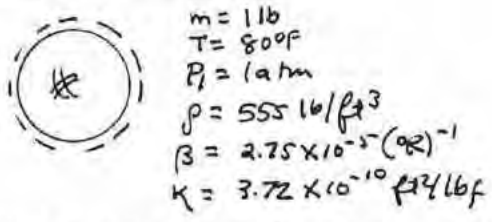 m = 1 lb
T = 80°F
P₁ = 1 atm
ρ = 555 lb/ft³
β = 2.75 × 10⁻⁵ (°R)⁻¹
K = 3.72 × 10⁻¹⁰ ft²/lbf